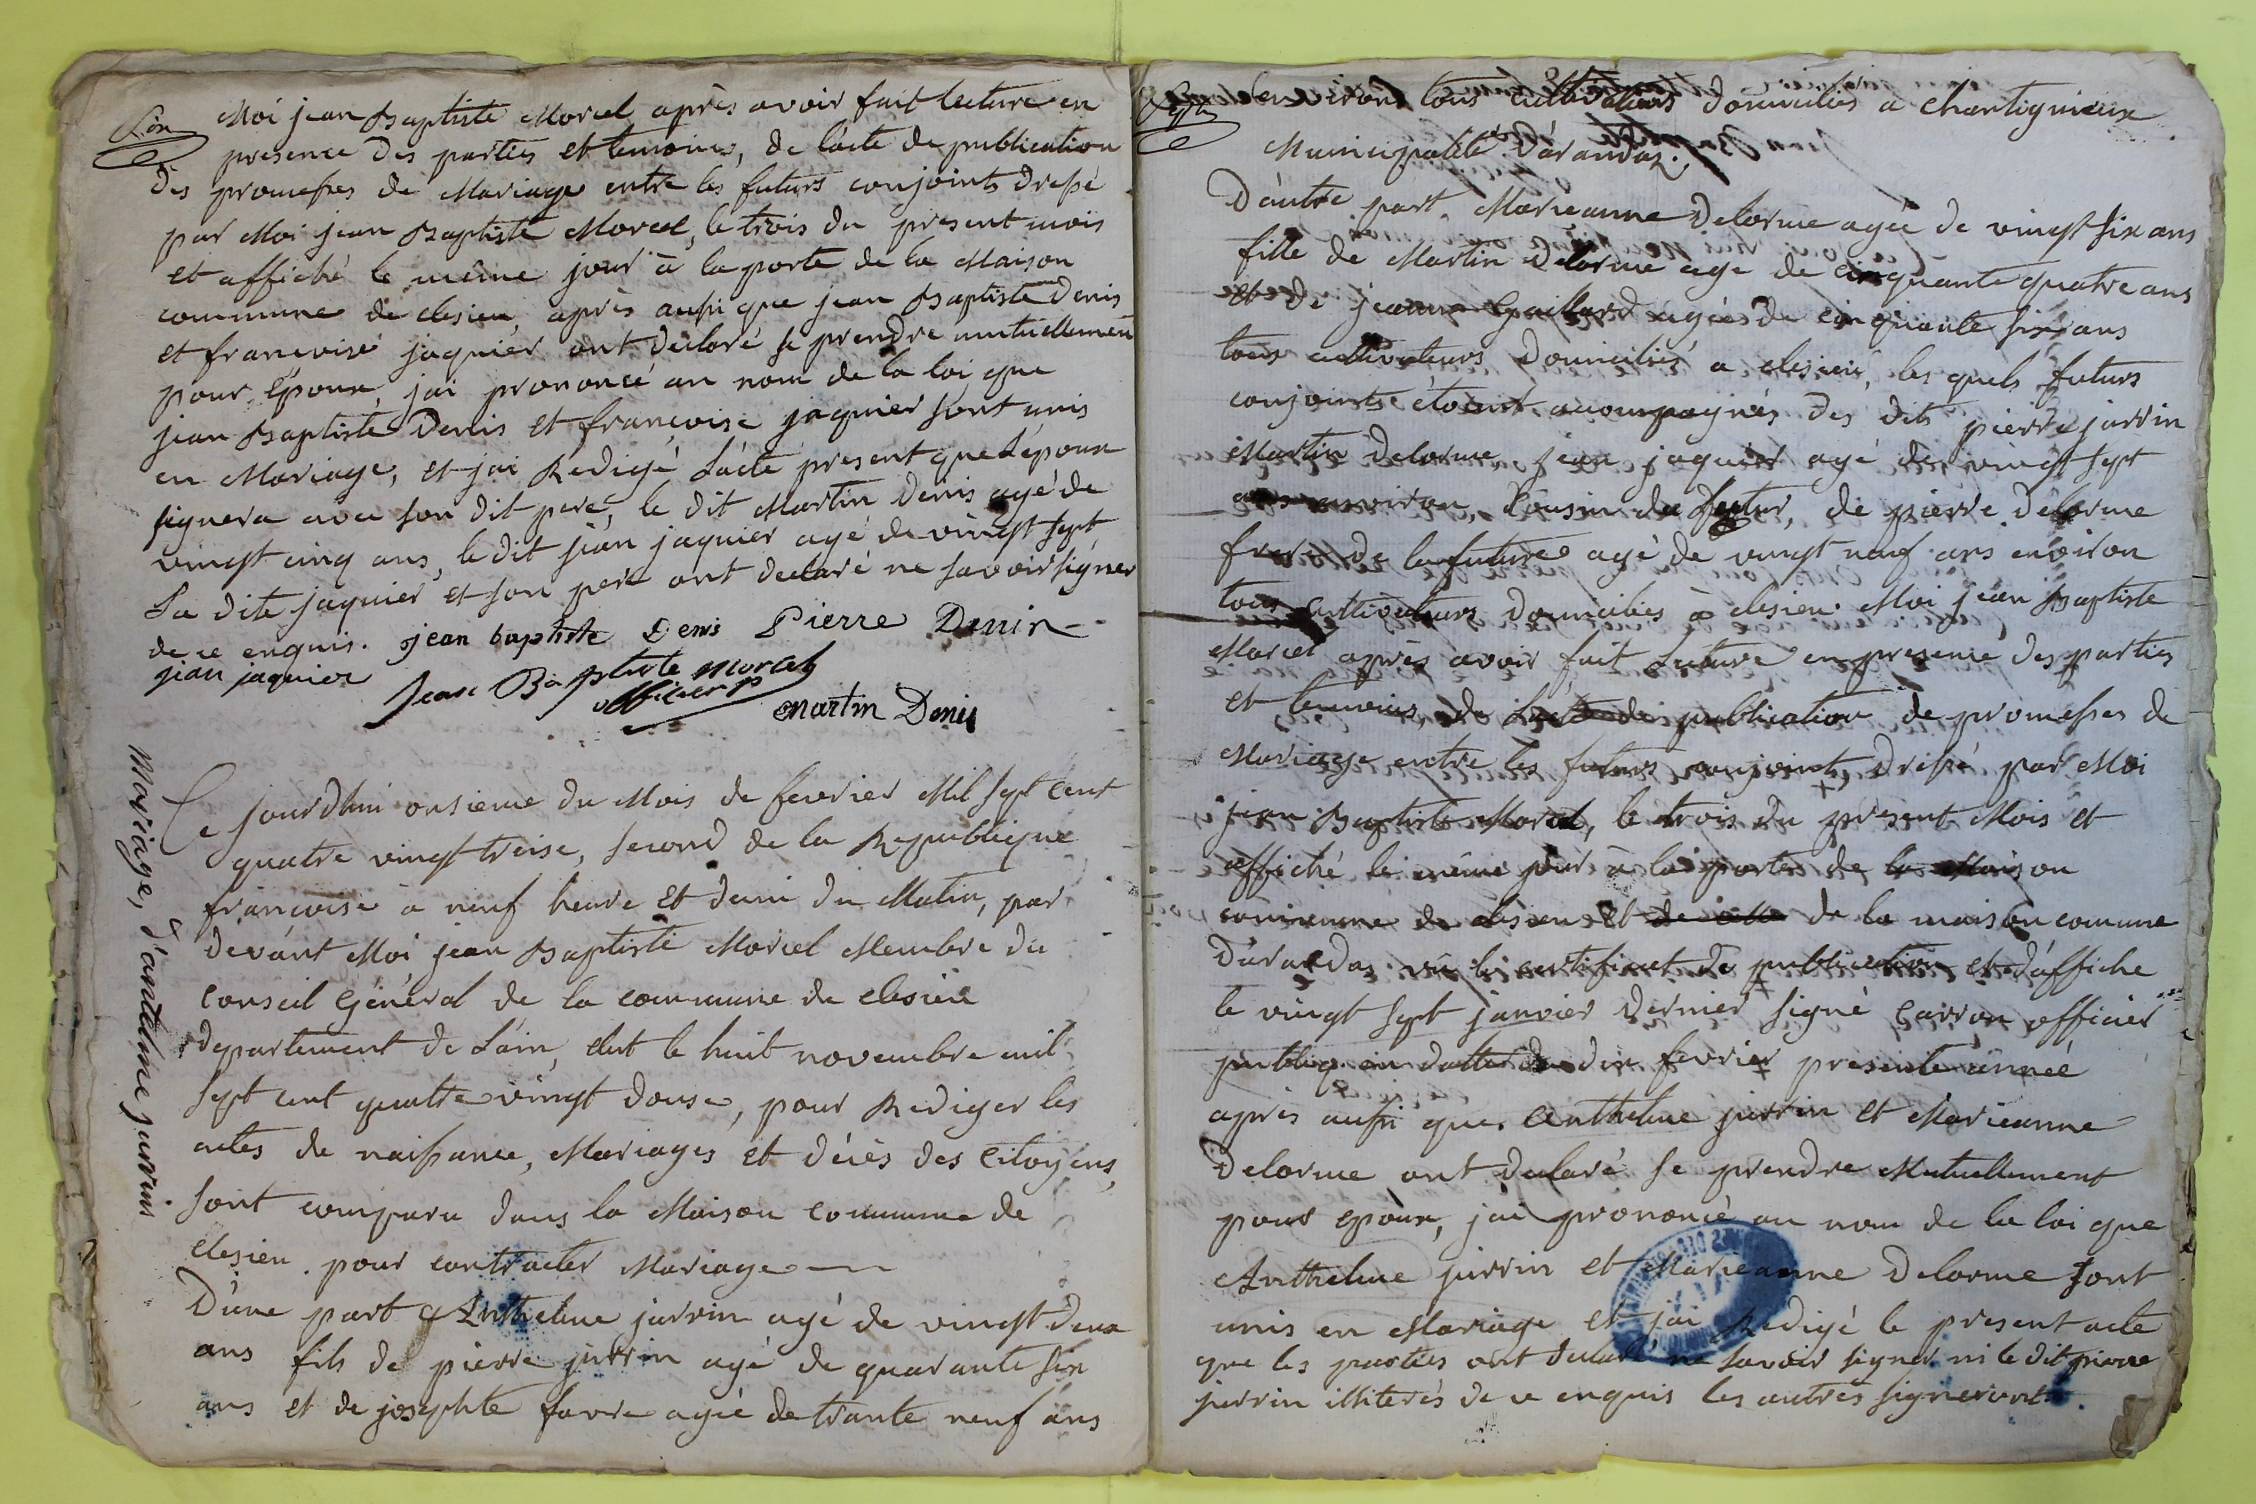 Six
Moi jean Baptiste Morcel après avoir fait lecture en
presence des parties et temoins, de l'acte de publication
des promesses de Mariage entre les futurs conjoints dressé
par Moi jean Baptiste Morcel, le trois du present mois
et affiché le même jour à la porte de la Maison
commune de clesieu, après aussi que jean Baptiste Denis
et francoise jaquier ont declaré se prendre mutuellement
pour époux, jai prononcé au nom de la loi que
jean Baptiste Denis et francoise jaquier sont unis
en Mariage, et jai Redigé L'acte present que L'époux
signera avec son dit pere, le dit Martin Denis agé de
vingt cinq ans, le dit jean jaquier agé de vingt sept,
La dite jaquier et son pere ont declaré ne savoir signer
de ce enquis. jean baptiste Denis Pierre Denis
jean jaquier Jean Baptiste Morcel
officier p
martin Denis
Mariage, d'antelme jurrin
Ce jourdhui onsieme du Mois de fevrier Mil sept cent
quatre vingt treise, second de la Republique
francoise à neuf heure et demi du Matin, par
devant Moi jean Baptiste Morcel Membre du
Conseil Général de la commune de clesieu
departement de L'ain, elut le huit novembre mil
sept cent quatre vingt douse, pour Rediger les
actes de naissance, Mariages et décès des Citoyens,
sont comparu dans la Maison Commune de
clesieu pour contracter Mariage
D'une part Anthelme jurrin agé de vingt deux
ans fils de pierre jurrin agé de quarante six
ans et de josephte favre agée de trante neuf ans
Sept
environ tous cultivateurs domiciliés a Chantignieux
Municipalité d'arandaz.
D'autre part. Marieanne Delorme agée de vingt six ans
fille de Martin Delorme age de cinquante quatre ans
et de jeanne Gaillard agée de cinquante six ans
tous cultivateurs Domiciliés a clesieu, les quels futurs
conjoints étoient acompagnés des dits pierre jurrin
Martin Delorme, jean jaquier agé de vingt sept
ans environ, Cousin du futur, de pierre Delorme
frere de la future agé de vingt neuf ans environ
tous cultivateurs domiciliés à clesieu. Moi jean Baptiste
Marcel après avoir fait Lecture en presence des parties
et temoins, de L'acte de publication de promesses de
Mariage entre les futurs conjoints dressé par Moi
jean Baptiste Morcel, le trois du present Mois et
affiché le même jour à la porte de la Maison
commune de clesieu et de celle de la maison commune
D'arandas vu le certificat de publication et d'affiche
le vingt sept janvier dernier signé Carron officier
publiq. en datte du dix fevrier presente année
après aussi que Anthelme jurrin et Marieanne
Delorme ont declaré se prendre Mutuellement
pour epoux, jai prononcé au nom de la loi que
Anthelme jurrin et Marieanne Delorme sont
unis en Mariage et jai Redigé le present acte
que les parties ont declaré ne savoir signer ni le dit pierre
jurrin illiterés de ce enquis les autres signeront.